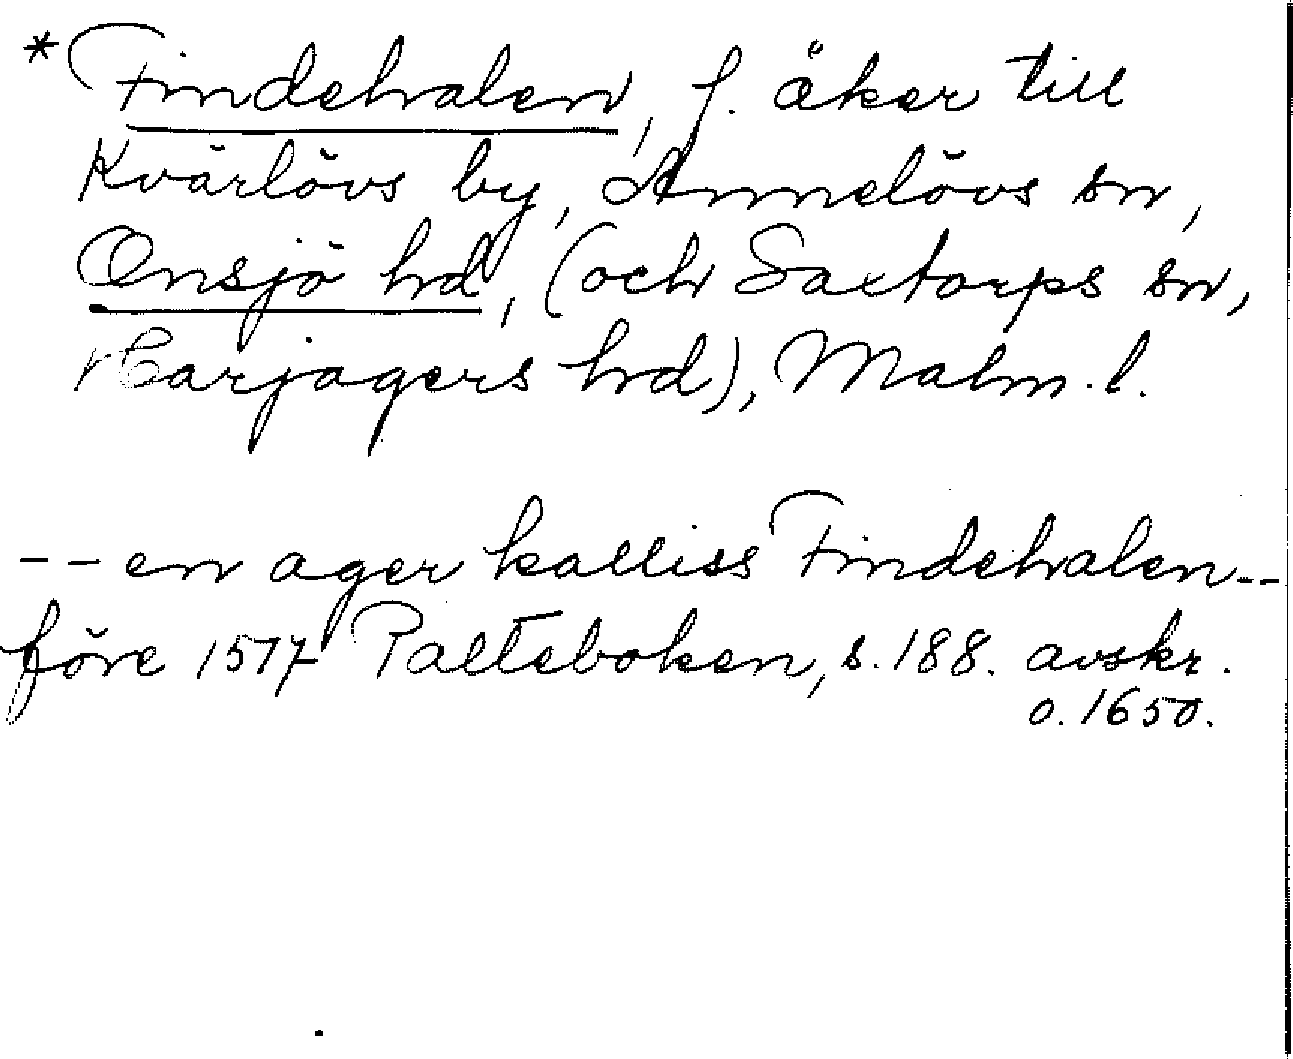 * Findehalen, f. åker till
Kvärlövs by, Annelövs sn,
Onsjö hd, (och Saxtorps sn,
Harjagers hd), Malm. l.
-- en ager kalliss Findehalen --
före 1517 Palteboken, s. 188. avskr.
o. 1650.